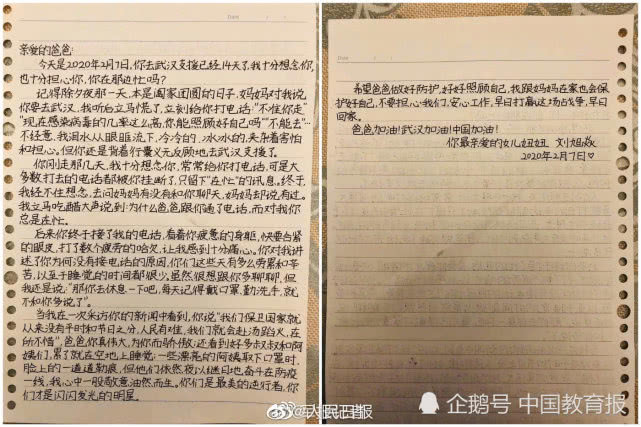 亲爱的爸爸:
今天是2020年2月7日,你去武汉支援已经14天了,我十分想念你,
也十分担心你,你在那边忙吗?
记得除夕夜那一天,本是阖家团圆的日子,妈妈对我说
你要去武汉,我听后立马慌了,立刻给你打电话:"不准你走"
"现在感染病毒的几率这么高,你能照顾好自己吗""不能去"…
不经意,我泪水从人眼眶流下,冷冷的,冰冰的,夹杂着害怕
和担心。但你还是背着行囊义无反顾地去武汉支援了。
你刚走那几天,我十分想念你,常常给你打电话,可是大
多数打去的电话都被你挂断了,只留下"在忙"的讯息。终于
我经不住想念,去问妈妈有没有和你聊天,妈妈却说有过。
我立马吃醋大声说到:为什么爸爸跟你通了电话,而对我你
总是在忙。
后来你终于接了我的电话,看着你疲惫的身躯,快要合紧
的眼皮,打了数个疲劳的哈欠,让我感到十分痛心。你对我讲
述了你为何没有接电话的原因,你们这些天有多么劳累和辛
苦,以至于睡觉的时间都很少。虽然很想跟你多聊聊,但
我还是说:"那你去休息一下吧,每天记得戴口罩,勤洗手,就
不和你多说了"。
当我在一次采访你的新闻中看到,你说"我们保卫国家就
从来没有平时和节日之分,人民有难,我们就会赴汤蹈火,在
所不惜",爸爸你真伟大,为你而骄傲,还看到好多叔叔和阿
姨们,累了就在空地上睡觉;一些漂亮的阿姨取下口罩时,
脸上的一道道勒痕,但他们依然夜以继日地奋斗在防疫
一线,我心中一股敬意油然而生。你们是最美的逆行者,你
们才是闪闪发光的明星。
希望爸爸做好防护,好好照顾自己,我跟妈妈在家也会保
护好自己,不要担心我们,安心工作,早日打赢这场战争,早日
回家。
爸爸加油!武汉加油!中国加油!
你最亲爱的女儿妞妞 刘姐
2020年2月7日♡
Date
Date
人民日报
企鹅号 中国教育报